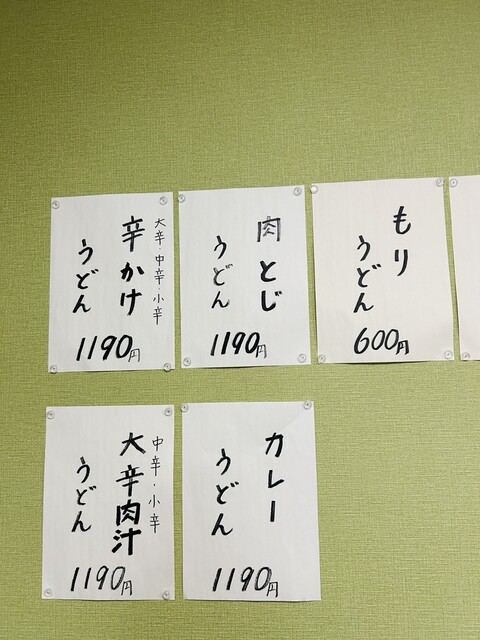 もり
うどん
600円
肉とじ
うどん
1190円
大辛・中辛・小辛
辛かけ
うどん
1190円
カレー
うどん
1190円
中辛・小辛
大辛肉汁
うどん
1190円